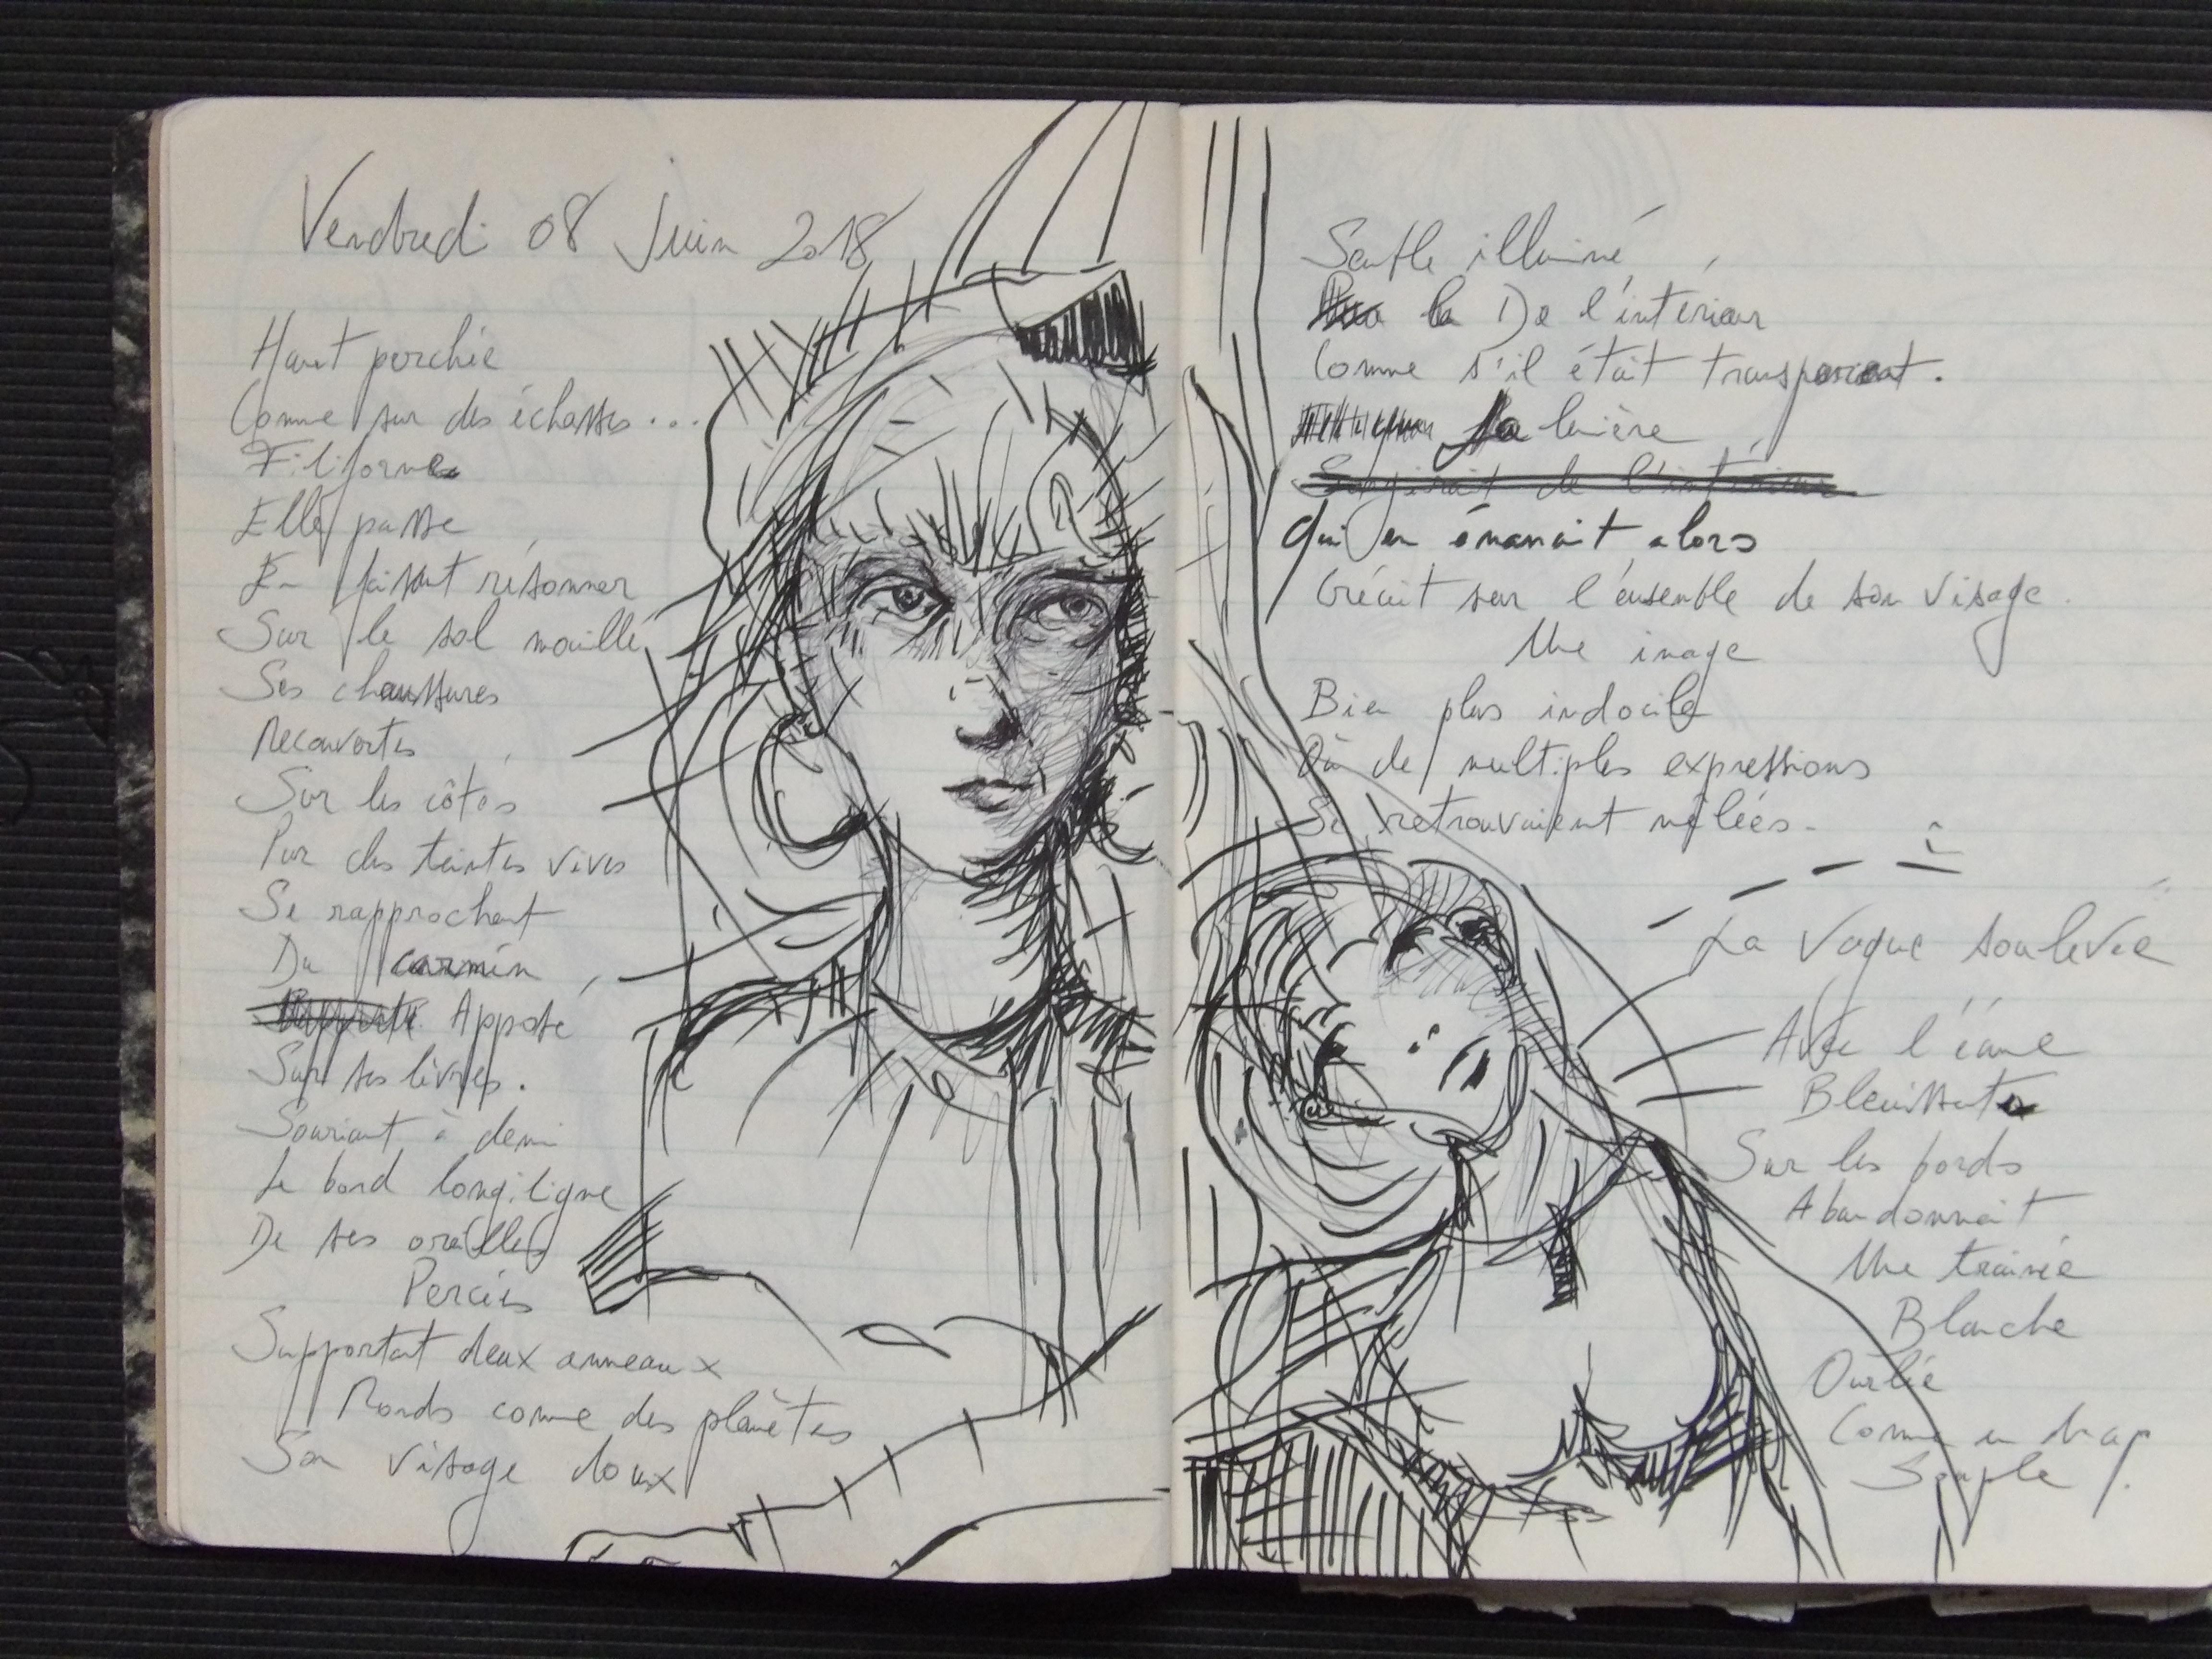 Vendredi 08 Juin 2018
Haut perchée
Comme sur des échasses...
Filiforme
Elle passe
En faisant résonner
Sur le sol mouillé
Ses chaussures
Recouvertes
Sur les côtés
Par des teintes vives
Se rapprochant
Du carmin
Apposé
Sur ses lèvres.
Souriant à demi
Le bord longiligne
De ses oreilles
Percées
Supportait deux anneaux
Ronds comme des planètes
Son visage doux
Semble illuminé
la De l'intérieur
Comme s'il était transparent.
La lumière
Surgirait de l'intérieur
Qui en émanait alors
Créait sur l'ensemble de son visage.
Une image
Bien plus indocile
Où de multiples expressions
Se retrouvaient mêlées.
La Vague soulevée
Avec l'écume
Bleuissante
Sur les bords
Abandonnait
Une trainée
Blanche
Ourlée
Comme un drap
Souple.